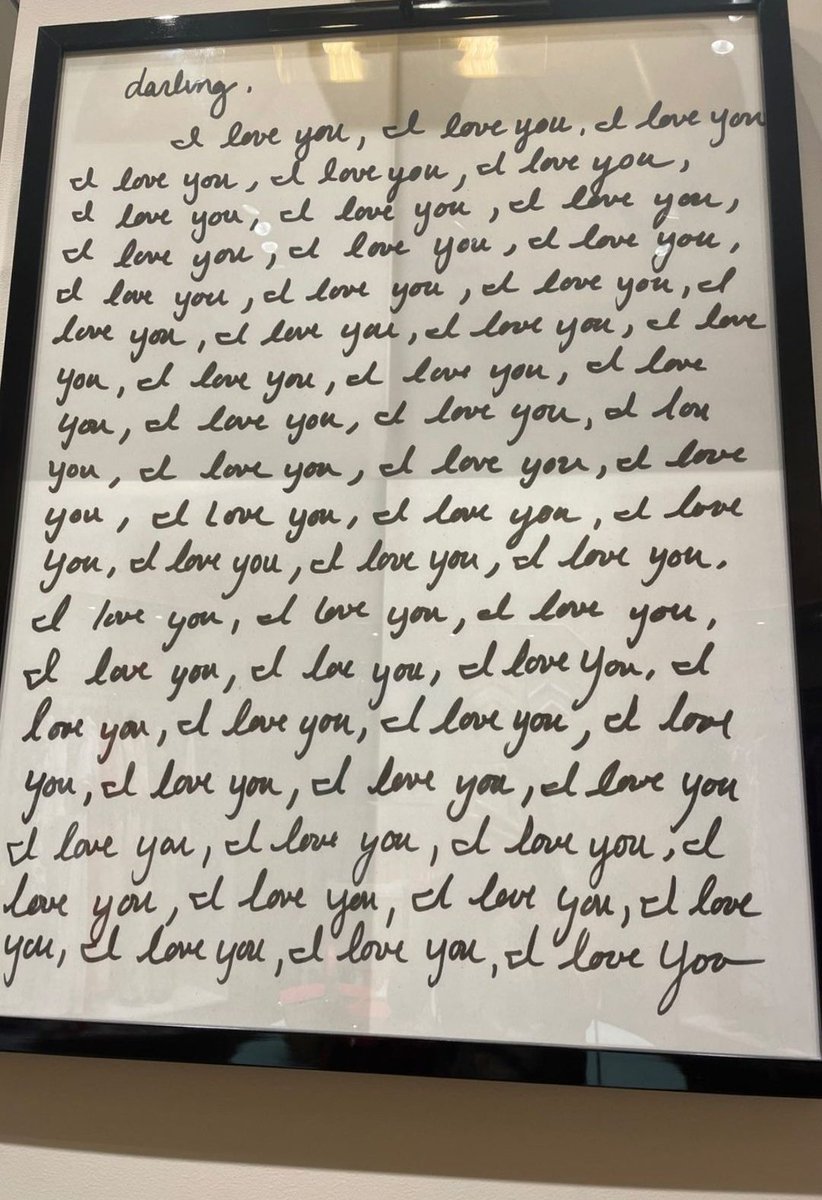 darling.
I love you, I love you, I love you
I love you, I love you, I love you,
I love you, I love you, I love you,
I love you, I love you, I love you,
I love you, I love you, I love you, I
love you, I love you, I love you, I love
you, I love you, I love you, I love
you, I love you, I love you, I love
you, I love you, I love you, I love
you, I love you, I love you, I love
you, I love you, I love you, I love you.
I love you, I love you, I love you,
I love you, I love you, I love you, I
love you, I love you, I love you, I love
you, I love you, I love you, I love you
I love you, I love you, I love you, I
love you, I love you, I love you, I love
you, I love you, I love you, I love you